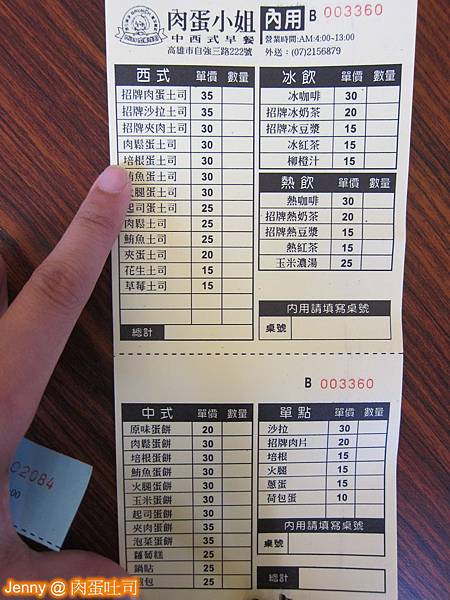 肉蛋小姐 內用 B 003360
中西式早餐
營業時間:AM:4:00-13:00
高雄市自強三路222號
外送：(07)2156879
西式 單價 數量
招牌肉蛋土司 35
招牌沙拉土司 35
招牌夾肉土司 30
肉鬆蛋土司 30
培根蛋土司 30
鮪魚蛋土司 30
火腿蛋土司 30
起司蛋土司 25
肉鬆土司 25
鮪魚土司 25
夾蛋土司 20
花生土司 15
草莓土司 15
總計
冰飲 單價 數量
冰咖啡 30
招牌冰奶茶 20
招牌冰豆漿 15
冰紅茶 15
柳橙汁 15
熱飲 單價 數量
熱咖啡 30
招牌熱奶茶 20
招牌熱豆漿 15
熱紅茶 15
玉米濃湯 25
內用請填寫桌號
桌號
B 003360
中式 單價 數量
原味蛋餅 20
肉鬆蛋餅 30
培根蛋餅 30
鮪魚蛋餅 30
火腿蛋餅 30
玉米蛋餅 30
起司蛋餅 30
夾肉蛋餅 35
泡菜蛋餅 30
蘿蔔糕 25
鍋貼 25
單點 單價 數量
沙拉 30
招牌肉片 20
培根 15
火腿 15
蔥蛋 15
荷包蛋 10
內用請填寫桌號
桌號
總計
02084
Jenny @ 肉蛋吐司